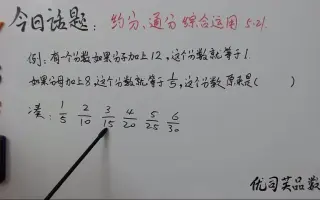 今日话题：约分、通分 综合运用 5.21.
例：有个分数如果分子加上12，这个分数就等于1.
如果分母加上8，这个分数就等于1/5，这个分数原来是（ ）
凑：1/5 2/10 3/15 4/20 5/25 6/30
优司芙品数